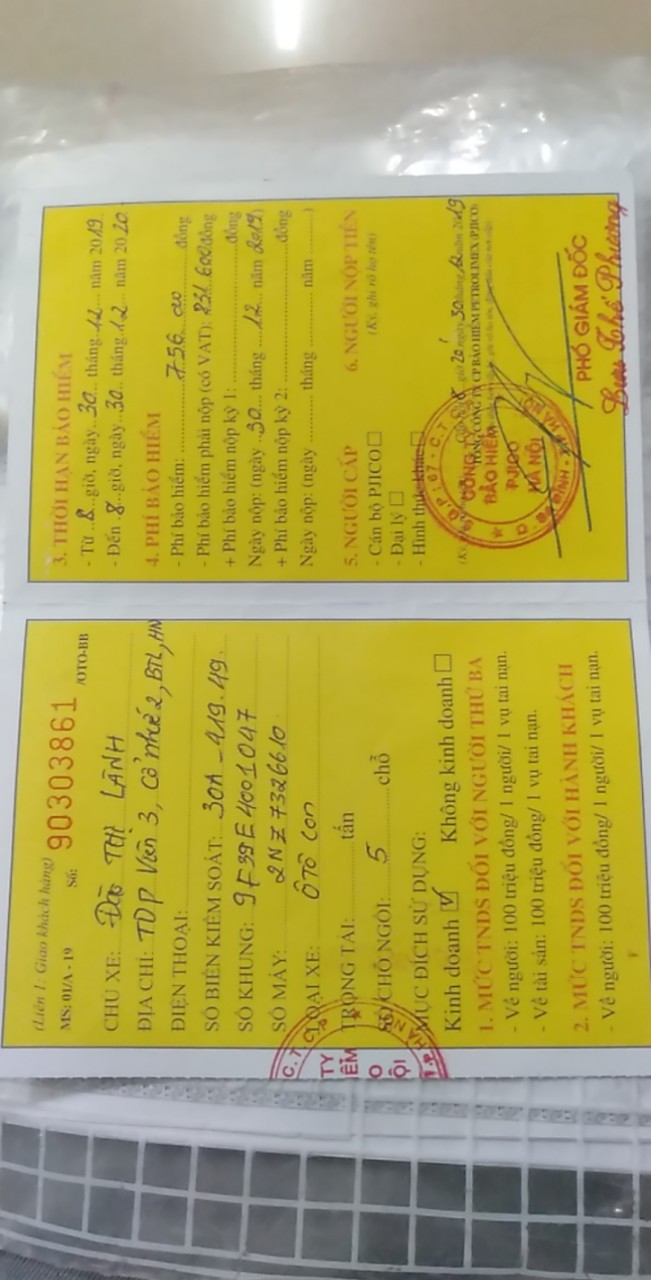 (Liên 1: Giao khách hàng)
MS: 01/A - 19 Số: 90303861 /OTO-BB
CHỦ XE: Đào THị LÀNH
ĐỊA CHỈ: TDP Viên 3, Cổ nhuế 2, BTL, HN
ĐIỆN THOẠI:
SỐ BIỂN KIỂM SOÁT: 30A - 419.49.
SỐ KHUNG: 9F39E4001047
SỐ MÁY: 2NZ7326610
LOẠI XE: ÔTÔ con
TRỌNG TẢI: tấn
SỐ CHỖ NGỒI: 5 chỗ
MỤC ĐÍCH SỬ DỤNG:
Kinh doanh Không kinh doanh
1. MỨC TNDS ĐỐI VỚI NGƯỜI THỨ BA
- Về người: 100 triệu đồng/ 1 người/ 1 vụ tai nạn.
- Về tài sản: 100 triệu đồng/ 1 vụ tai nạn.
2. MỨC TNDS ĐỐI VỚI HÀNH KHÁCH
- Về người: 100 triệu đồng/ 1 người/ 1 vụ tai nạn.
3. THỜI HẠN BẢO HIỂM
- Từ 8 giờ, ngày 30 tháng 12 năm 2019
- Đến 8 giờ, ngày 30 tháng 12 năm 2020
4. PHÍ BẢO HIỂM
- Phí bảo hiểm: 756 000 đồng
- Phí bảo hiểm phải nộp (có VAT): 831 600 đồng
+ Phí bảo hiểm nộp kỳ 1: đồng
Ngày nộp: (ngày 30 tháng 12 năm 2019)
+ Phí bảo hiểm nộp kỳ 2: đồng
Ngày nộp: (ngày tháng năm )
5. NGƯỜI CẤP 6. NGƯỜI NỘP TIỀN
- Cán bộ PJICO (Ký, ghi rõ họ tên)
- Đại lý
- Hình thức khác
8 giờ 20 ngày 30 tháng 12 năm 2019
TỔNG CÔNG TY CP BẢO HIỂM PETROLIMEX (PJICO)
CÔNG TY
BẢO HIỂM
PJICO
HÀ NỘI
PHÓ GIÁM ĐỐC
Lưu Thế Phương